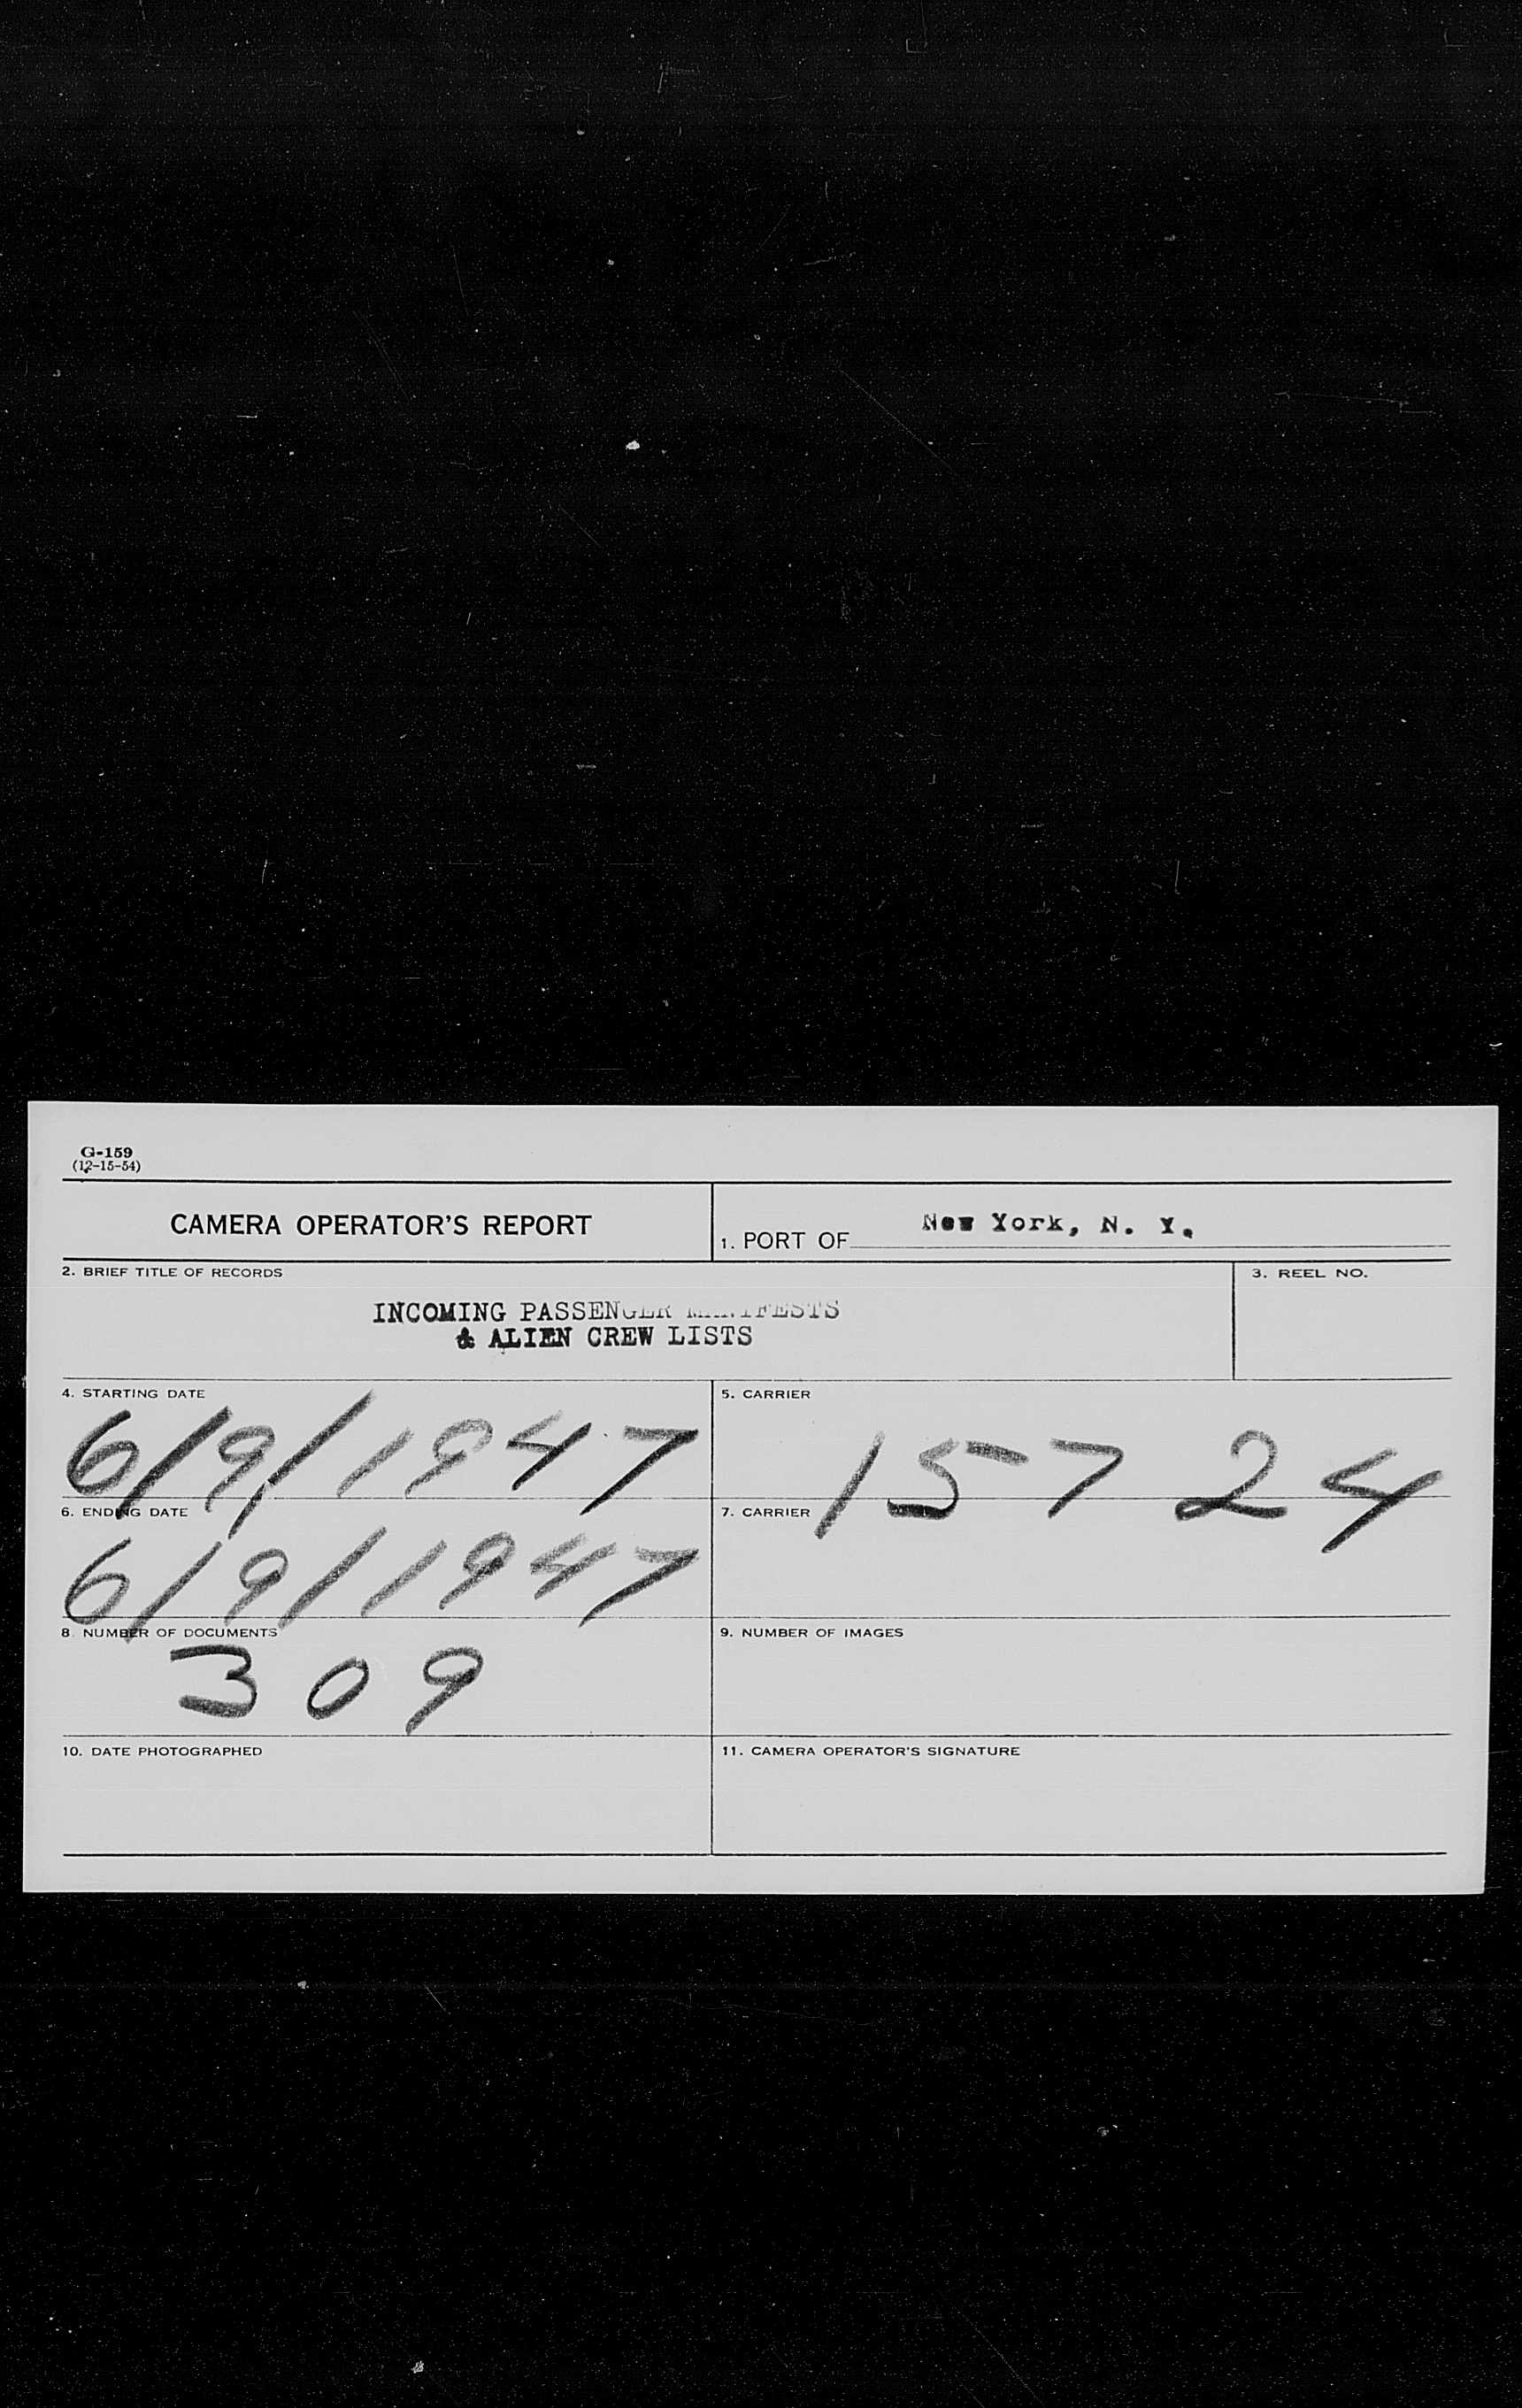 G-159
(12-15-54)
CAMERA OPERATOR'S REPORT
1. PORT OF New York, N. Y.
2. BRIEF TITLE OF RECORDS
3. REEL NO.
INCOMING PASSENGER MANIFESTS
& ALIEN CREW LISTS
4. STARTING DATE
6/9/1947
5. CARRIER
15724
6. ENDING DATE
6/9/1947
7. CARRIER
8. NUMBER OF DOCUMENTS
309
9. NUMBER OF IMAGES
10. DATE PHOTOGRAPHED
11. CAMERA OPERATOR'S SIGNATURE